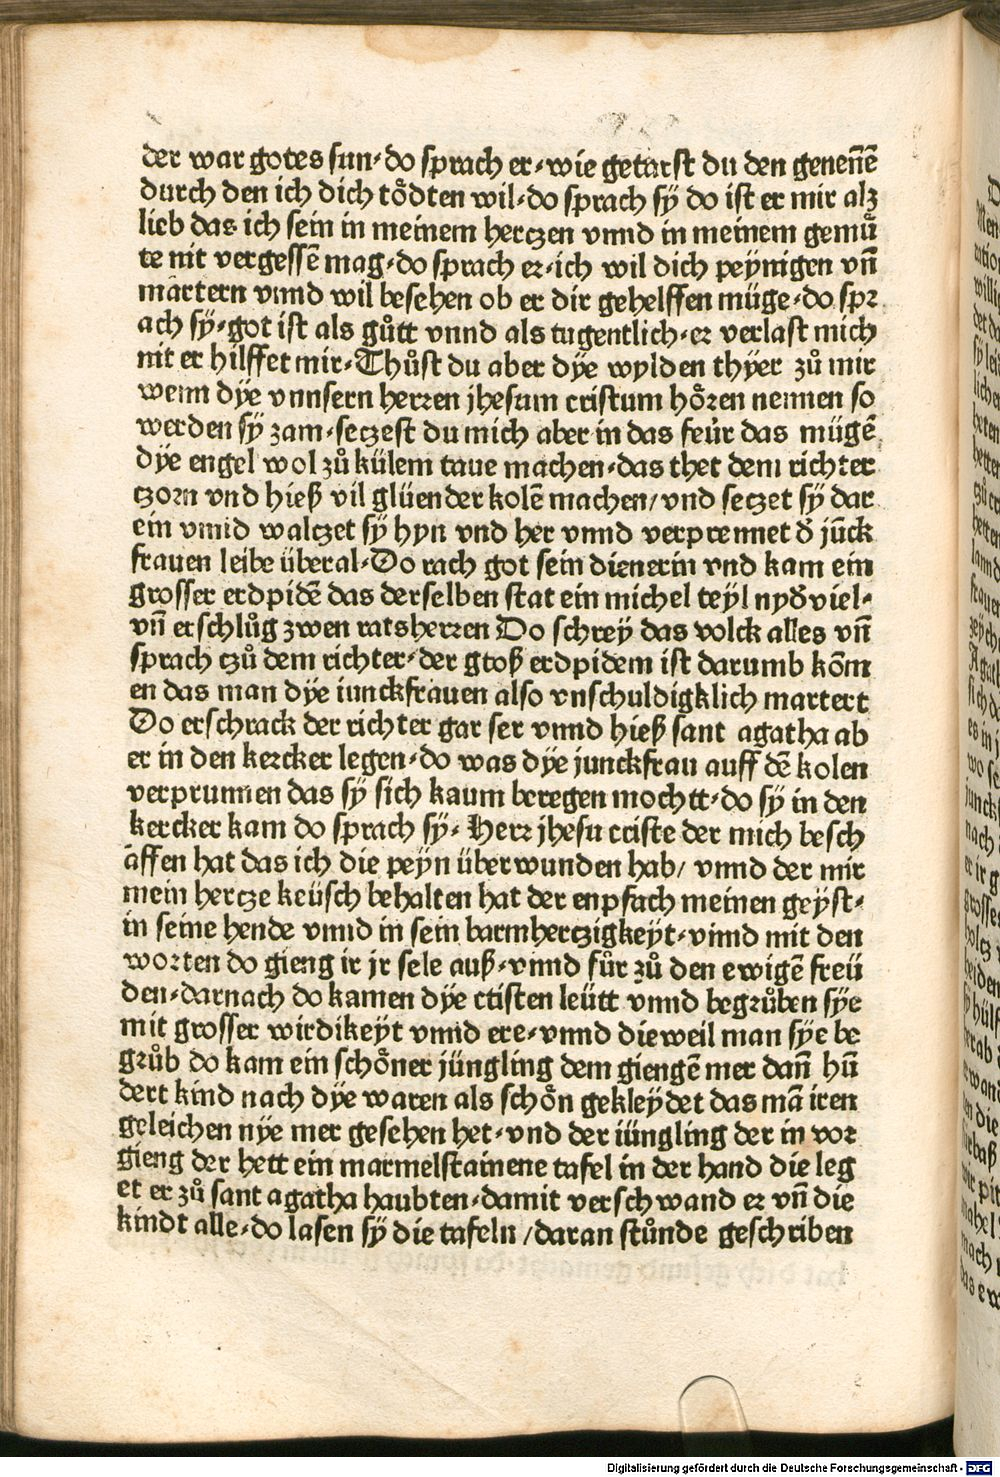 der war gotes sun·do sprach er·wie getarst du den geneñē
durch den ich dich tödten wil·do sprach sÿ do ist er mir alz
lieb das ich sein in meinem hertzen vnnd in meinem gemuͤ
te nit vergessē mag·do sprach er·ich wil dich peÿnigen vñ
martern vnnd wil besehen ob er dir gehelffen müge·do spr
ach sÿ·got ist als guͦtt vnnd als tugentlich·er verlast mich
nit er hilffet mir·Thuͦst du aber dÿe wylden thÿer zuͦ mir
wenn dÿe vnnsern herren jhesum cristum hören nennen so
werden sÿ zam·seczest du mich aber in das feür das mügē
dÿe engel wol zuͦ külem taue machen·das thet dem richter
czorn vnd hieß vil glüender kolē machen/vnd seczet sÿ dar
ein vnnd walczet sÿ hyn vnd her vnnd verprennet d̕ jūck
frauen leibe überal·Do rach got sein dienerin vnd kam ein
grosser erdpidē das derselben stat ein michel teÿl nyd̕viel·
vñ erschluͦg zwen ratsherren Do schreÿ das volck alles vñ
sprach czuͦ dem richter·der gtoß erdpidem ist darumb kōm
en das man dÿe iunckfrauen also vnschuldigklich martert
Do erschrack der richter gar ser vnnd hieß sant agatha ab
er in den kercker legen·do was dÿe junckfrau auff dē kolen
verprunnen das sÿ sich kaum beregen mochtt·do sÿ in den
kercker kam do sprach sÿ·Herr jhesu criste der mich besch
affen hat das ich die peÿn überwunden hab/ vnnd der mir
mein hercze keüsch behalten hat der enpfach meinen geÿst·
in seine hende vnnd in sein barmherczigkeÿt·vnnd mit den
worten do gieng ir jr sele auß·vnnd fuͦr zuͦ den ewigē freü
den·darnach do kamen dÿe ctisten leütt vnnd begruͦben sÿe
mit grosser wirdikeÿt vnnd ere·vnnd dieweil man sÿe be
gruͦb do kam ein schöner jüngling dem giengē mer dañ hū
dert kind nach dÿe waren als schön gekleÿdet das mā iren
geleichen nÿe mer gesehen het·vnd der iüngling der in vor
gieng der hett ein marmelstainene tafel in der hand die leg
et er zuͦ sant agatha haubten·damit verschwand er vñ die
kindt alle·do lasen sÿ die tafeln /daran stuͦnde geschriben
Digitalisierung gefördert durch die Deutsche Forschungsgemeinschaft - DFG